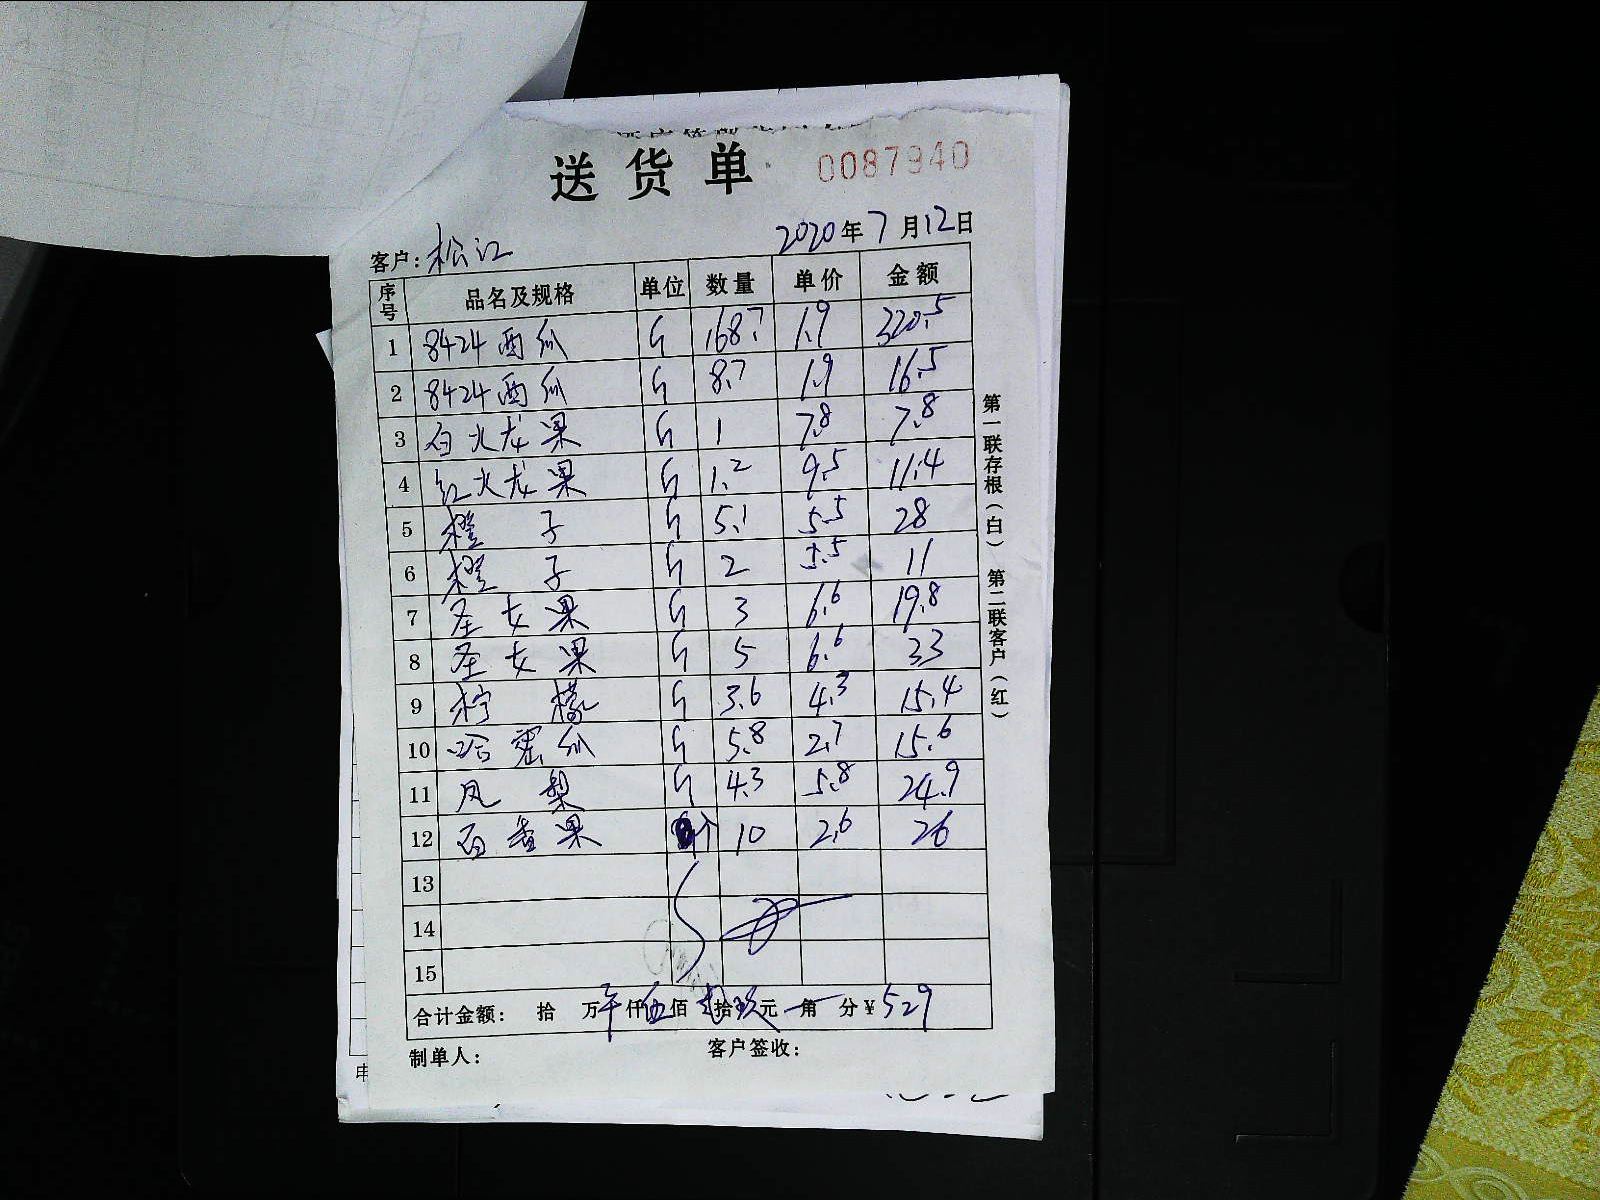 送货单 0087940
客户: 松江 2020年7月12日
序号 品名及规格 单位 数量 单价 金额
1 8424西瓜 斤 168.7 1.9 320.5
2 8424西瓜 斤 8.7 1.9 16.5
3 白火龙果 斤 1 7.8 7.8
4 红火龙果 斤 1.2 9.5 11.4
5 橙子 斤 5.1 5.5 28
6 橙子 斤 2 5.5 11
7 圣女果 斤 3 6.6 19.8
8 圣女果 斤 5 6.6 33
9 柠檬 斤 3.6 4.3 15.4
10 哈密瓜 斤 5.8 2.7 15.6
11 凤梨 斤 4.3 5.8 24.9
12 百香果 个 10 2.6 26
13
14
15
合计金额: 拾 万 仟伍佰 拾玖元 角 分¥529
制单人: 客户签收:
第一联存根(白) 第二联客户(红)
申